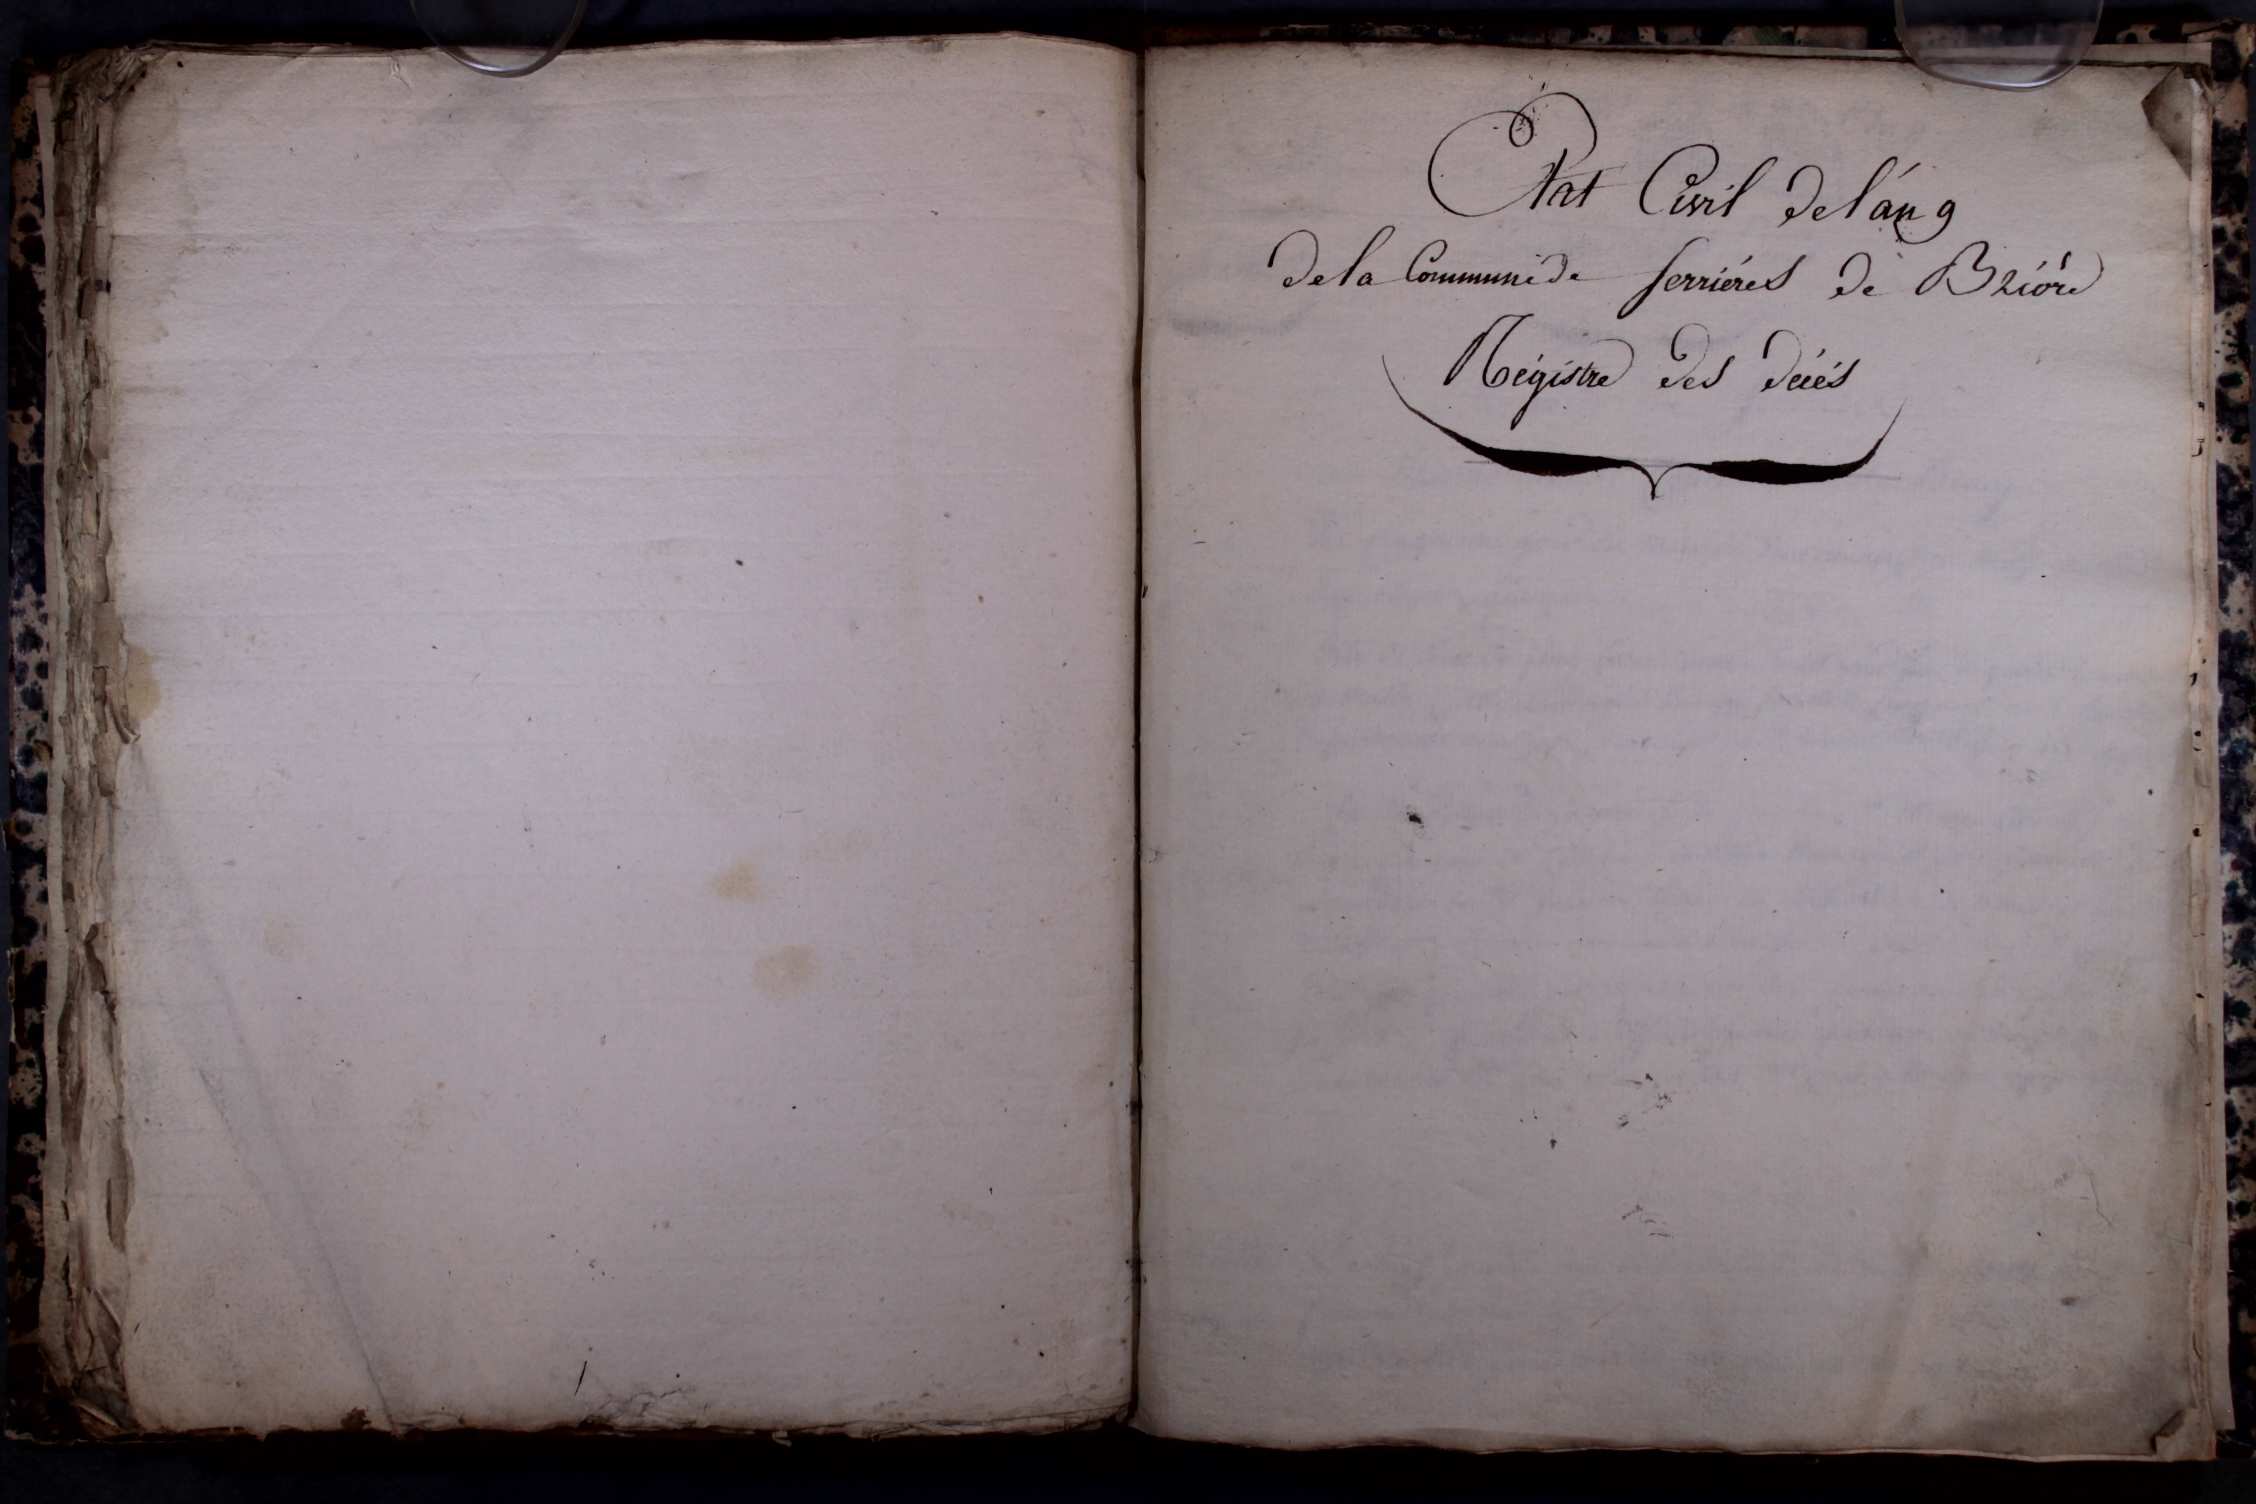 Etat Civil de l'an 9
de la Commune de serriéres de Briord
Régistre des décés